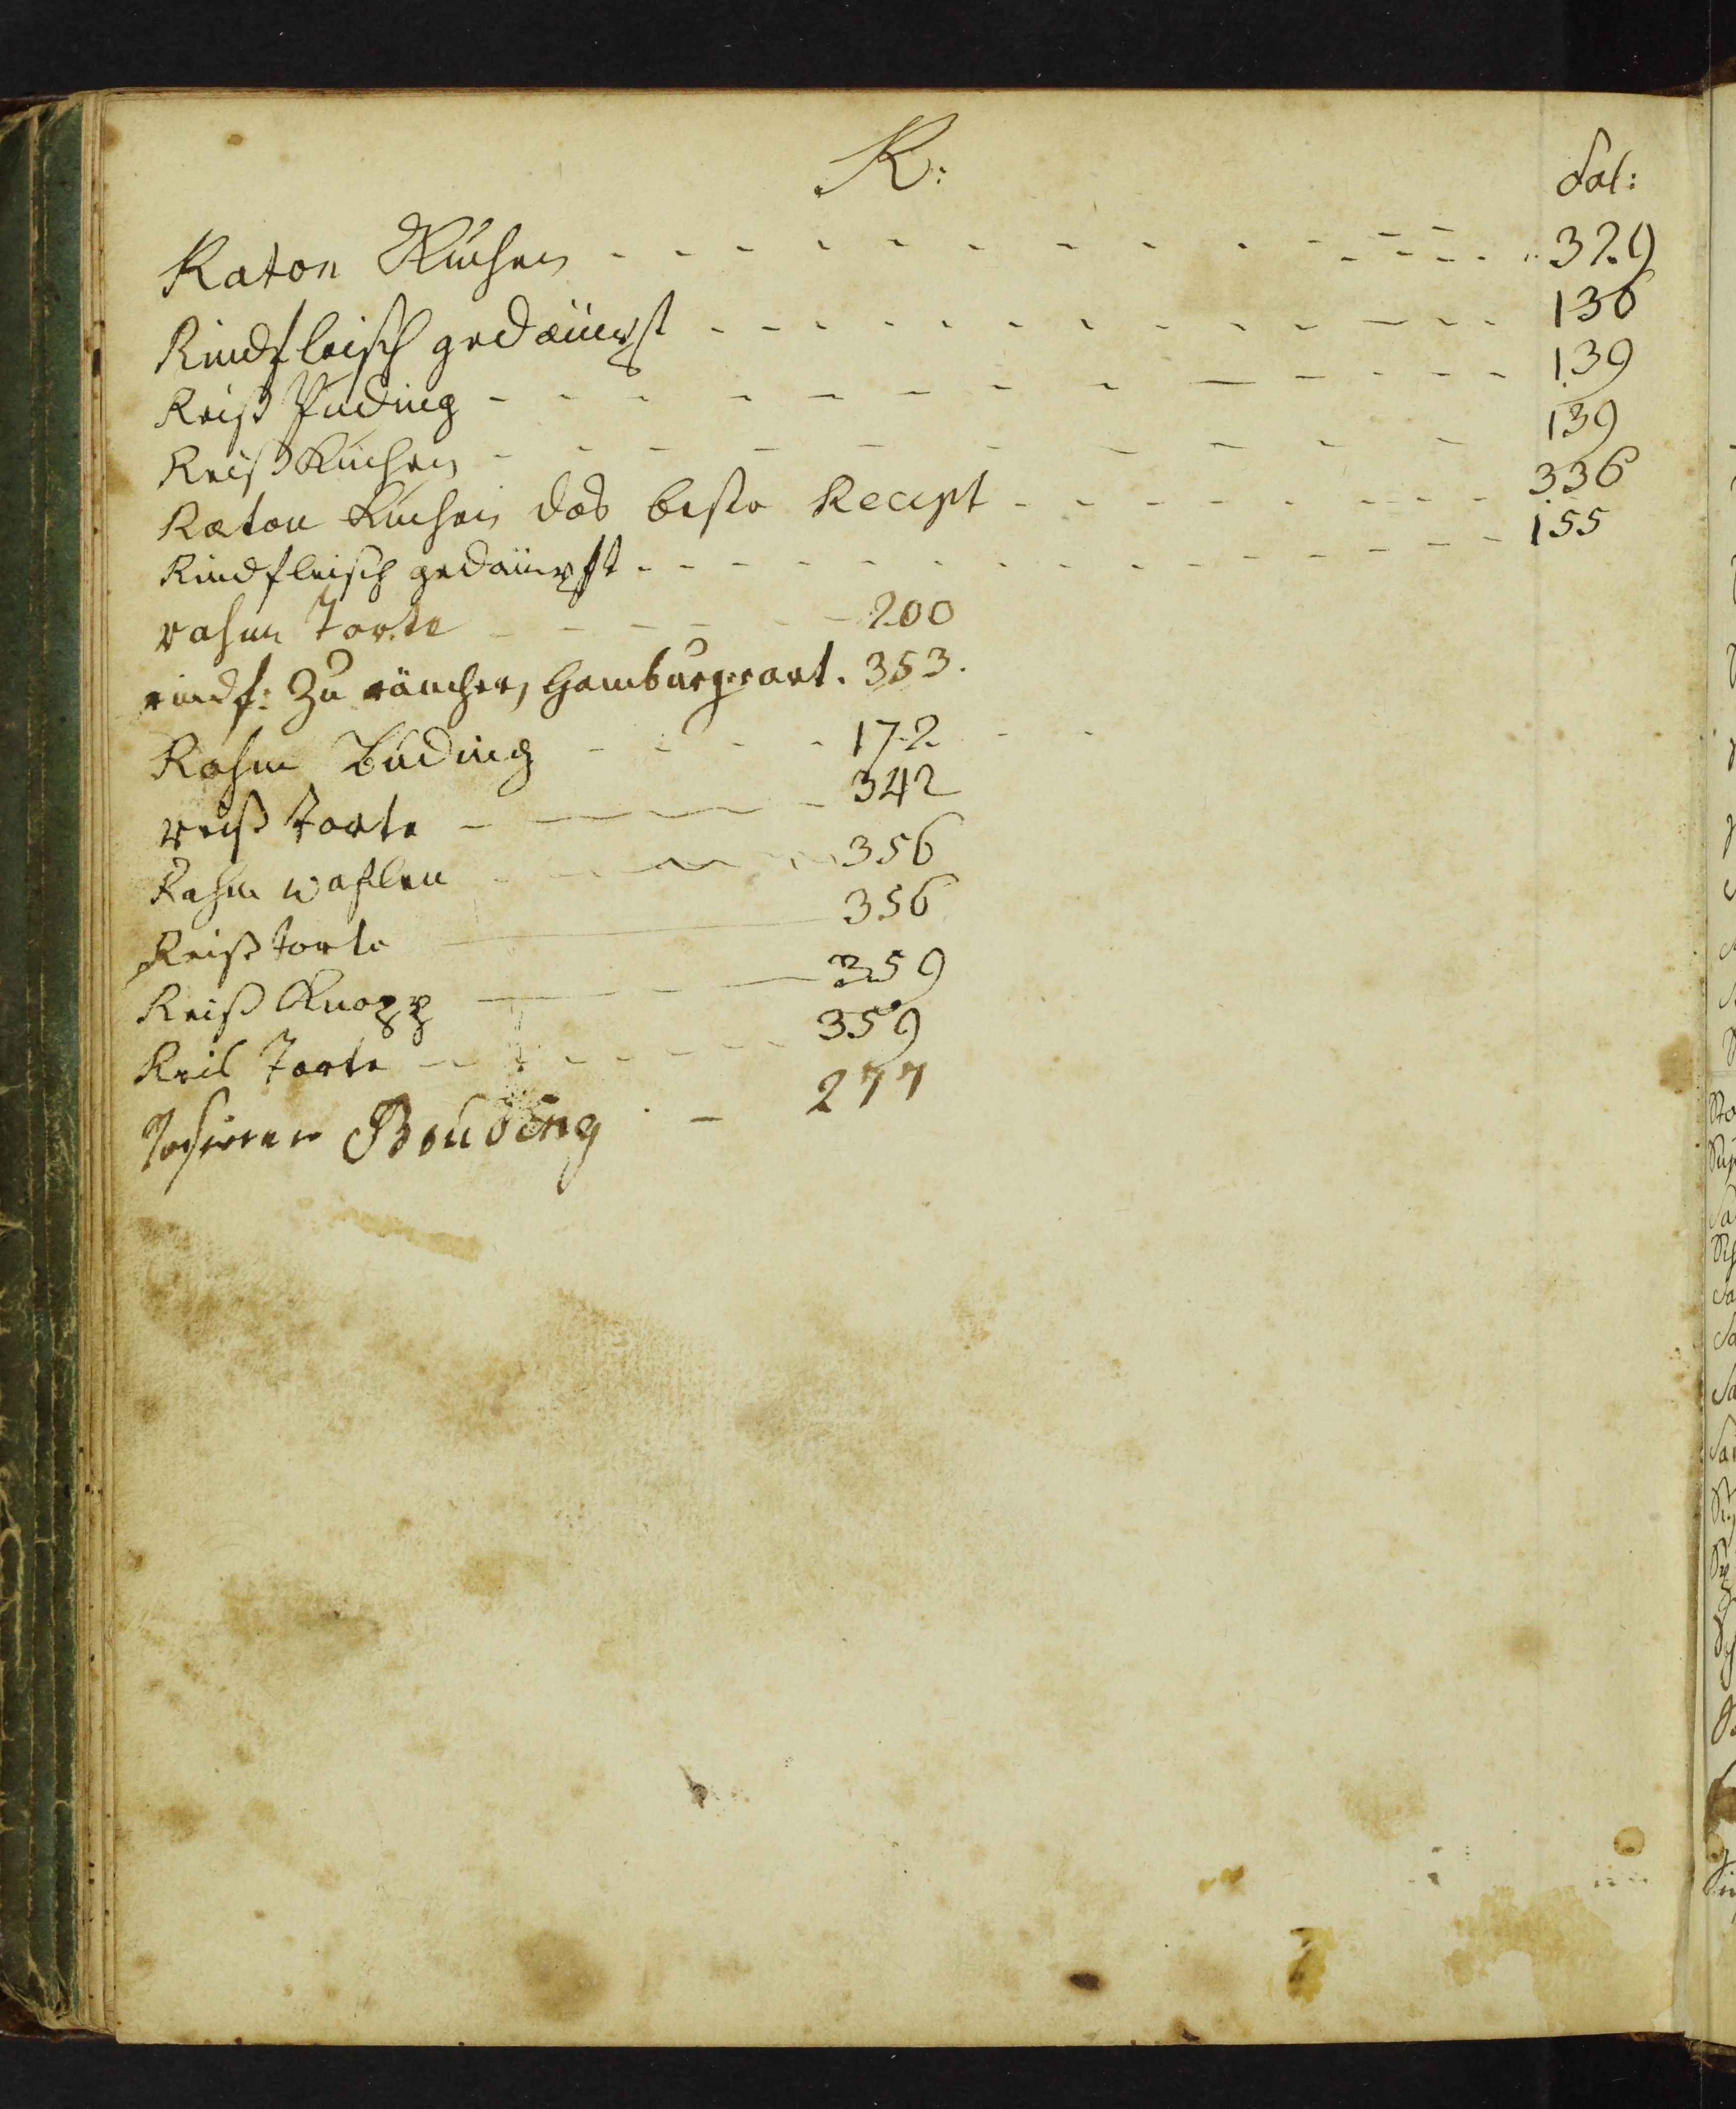 R:
Fol:
Raton Kuchen 329
Rindfleisch gedämpft 136
Reiß Puding 139
Reiß Kuchen 139
Raton Kuchen das beste Recept 336
Rindfleisch gedämpft 155
rahm Torte 200
rindf: Zu räuchern Hamburger art. 353.
Rahm Buding 172
reiß torte 342
Rahm waflen 356
Reiß torte 356
Reiß Knopp 359
Reis Torte 359
Bouding 277